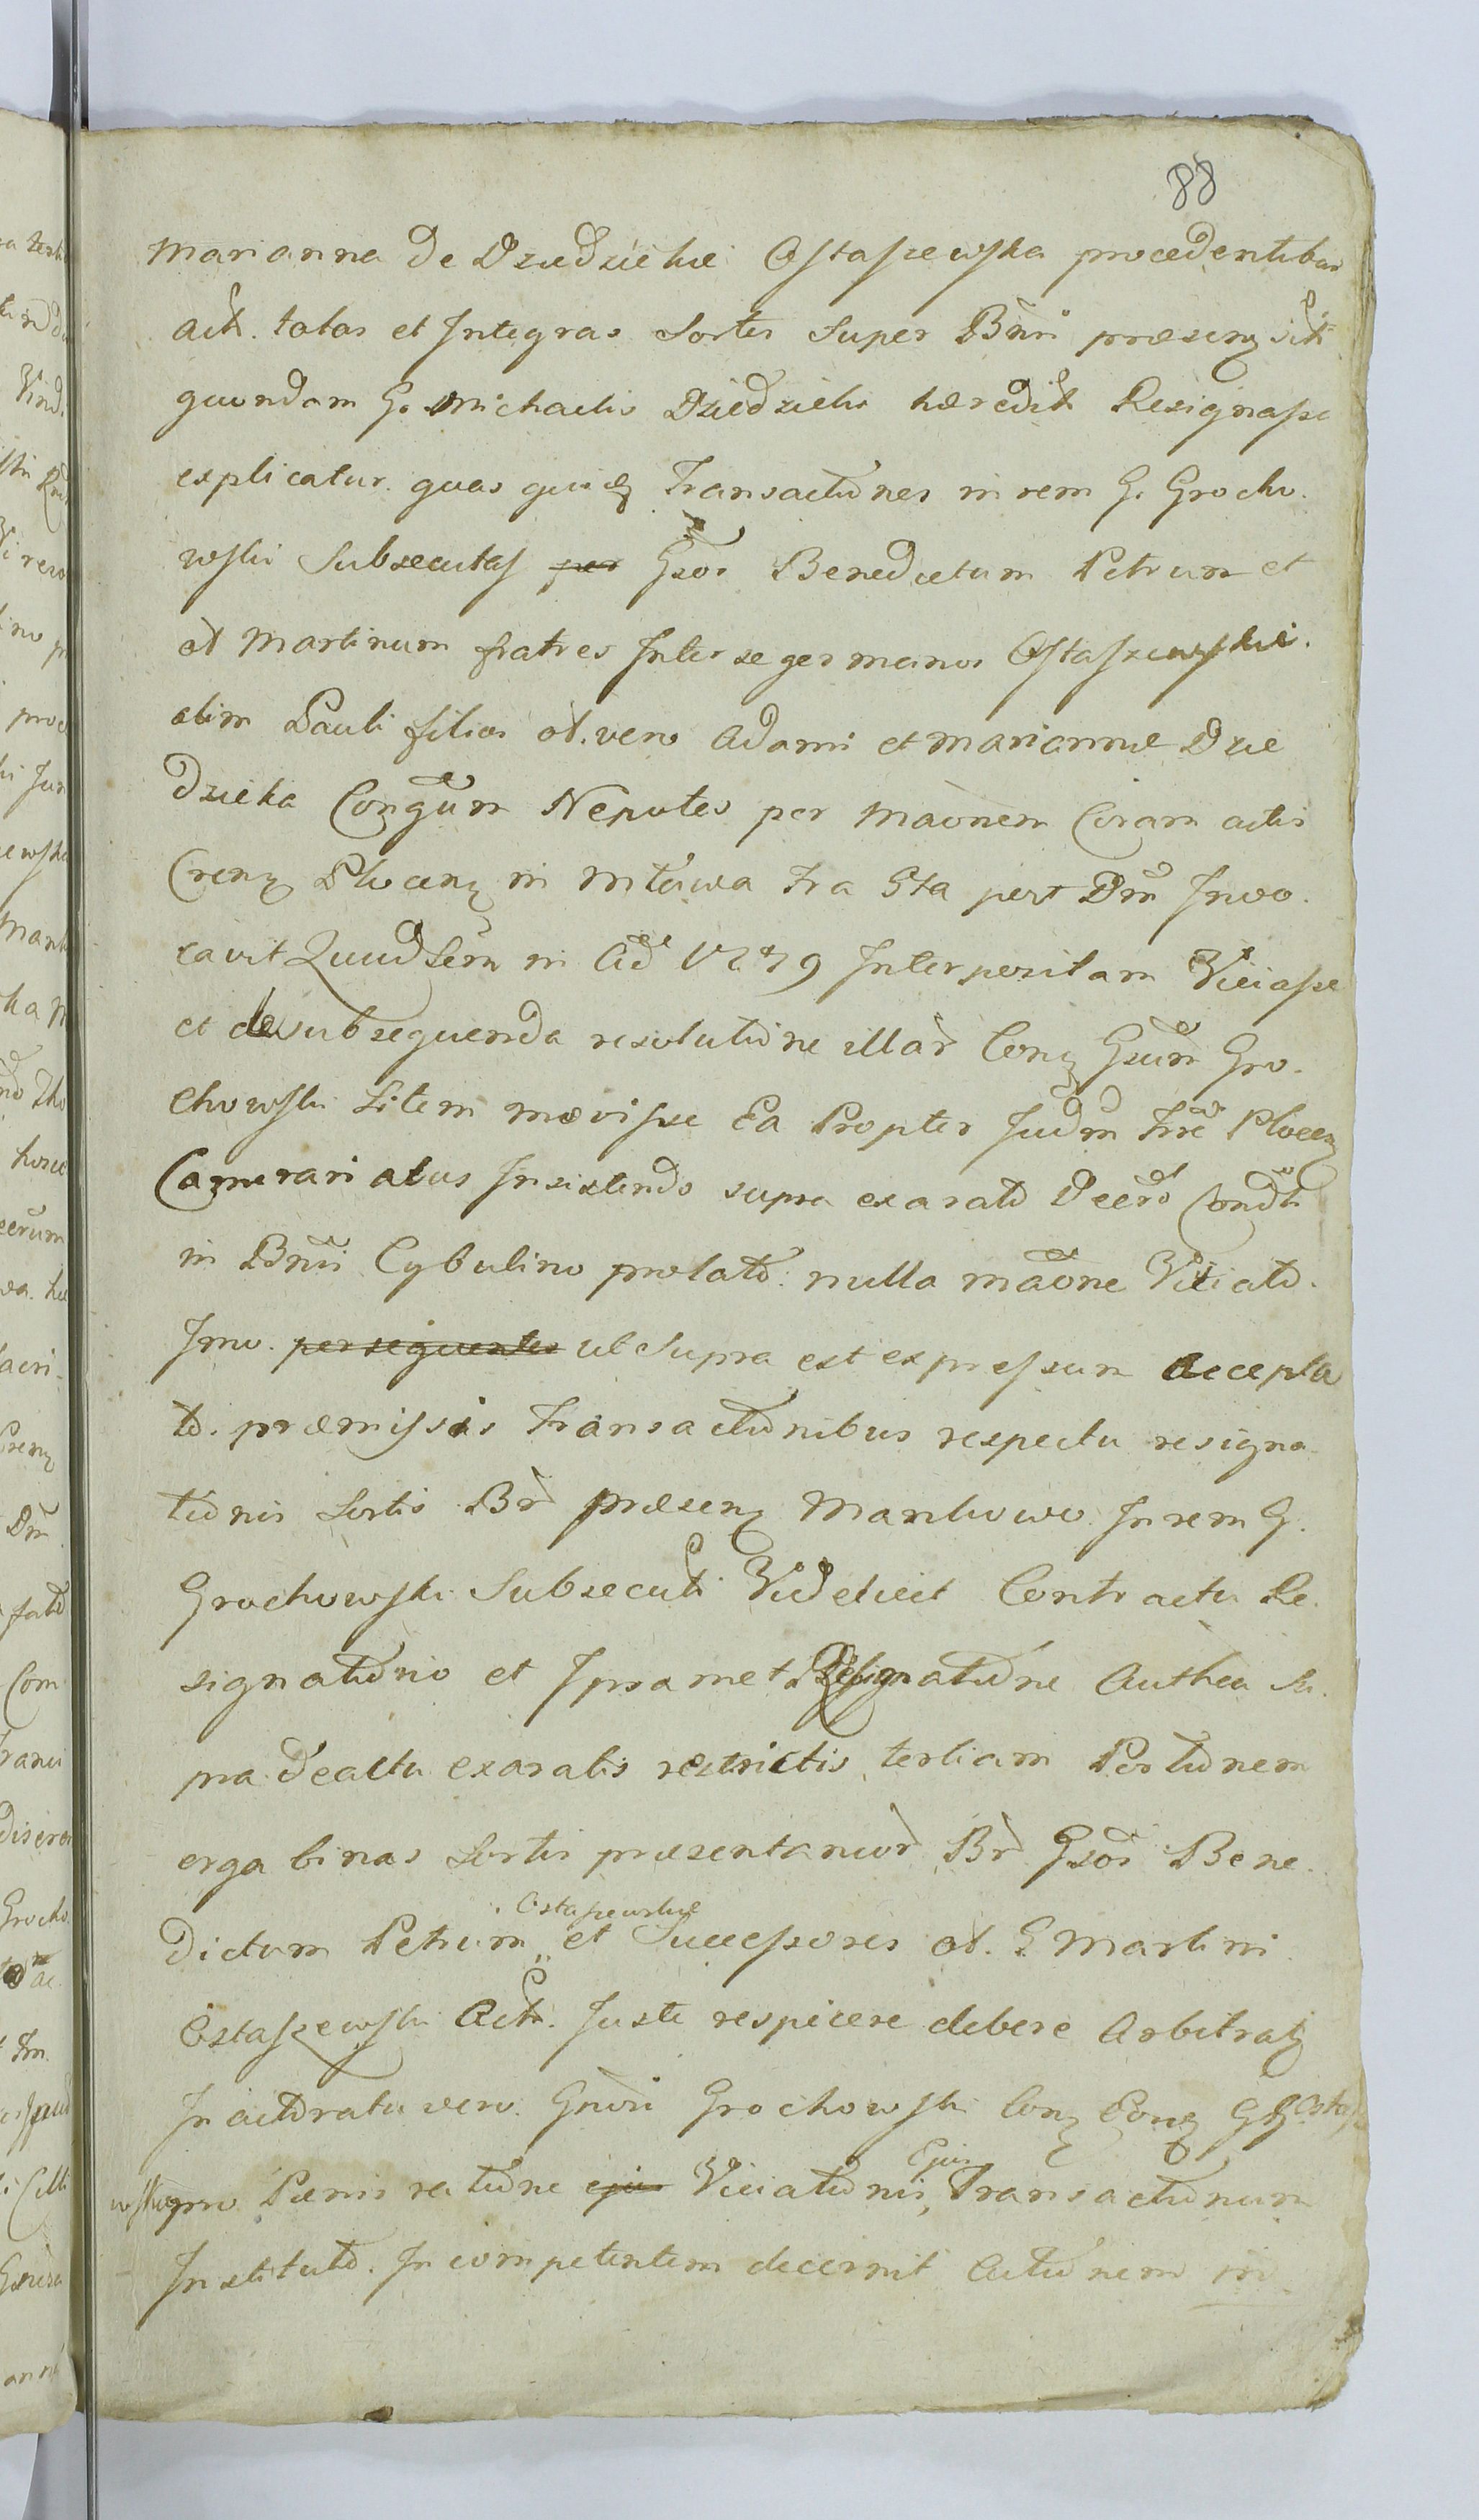 88
Marianna de Dziedzickie Ostaszewska procedentibus
act. totas et Integras Sortes Super Bnri præsenz sit
quondam G. Michaelis Dziedzicki hæredit Resignasse
explicatur. quas quidz Transactiones in rem G. Grocho.
wski Subsecutas per Gsos Benedictum Petrum et
et Martinum fratres Inter se germanos Ostaszewskie.
olim Pauli filios ol. vero Adami et Mariannæ Dzie
dzicka Conjgum Nepotes per Maonem Coram actis
Crenz Plocenz in Mława Fra 5ta post Dm Invo.
cavit Quadsem in Ad 1779 Interpositam Viciasse
et de subsequenda resolutione illar Conz Gsum Gro.
chowski Litem movisse Ea Propter Judm Trre Plocenz
Camerariatus Insistendo supra exarato Decrto Condti
in Bnri Cybulino prolato. nulla maone Viciato.
Imo. persequentes ut Supra est expressum accepta
to. præmissis Transactionibus respectu resigna
tionis Sortis Br præsenz Mankowo In rem G.
Grochowski Subsecuti Videlicit Contractu Re.
signationis et Ipsamet Resignatione Authen Su.
pra de actu exaratis restrictis, tertiam Portionem
erga binas Sortis præsentaneor Br Gsos Bene.
dictum Petrum Ostaszewskie et Successores ol. G Martini
Ostaszewski Act. Juste respicere debere Arbitratz
In actoratu vero. Gnori Grochowski Conz Eosqz GG Ostasz
wskie pro Pænis ratione ejus Viciationis, Ejus Transactionum
Instituto. Incompetentem decernit Actionem in